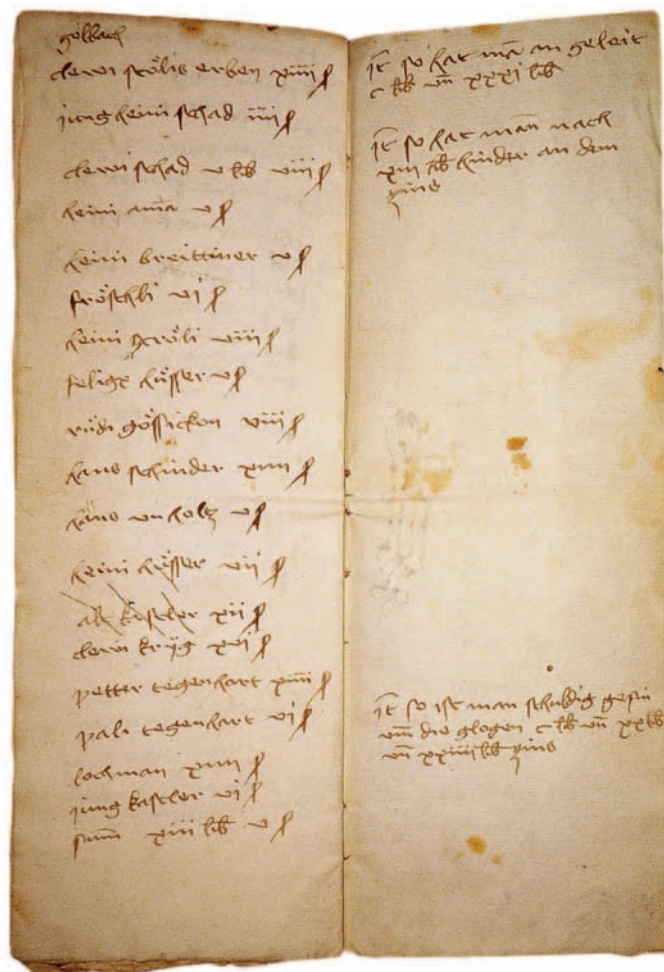 golbach
clewi stölis erben xiiii ß
jung heini schad iiii ß
clewi schad v lib viii ß
heini ama v ß
heini breittiner v ß
fröschli vi ß
heini gröli viii ß
felige hüsser v ß
rüdi gössickon viii ß
hans schinder xiiii ß
hans vn holtz v ß
heini hüsser vii ß
alt kastler xii ß
clewi krÿg xvi ß
petter tegenhart xiiii ß
pali tegenhart vi ß
lochman xiiii ß
jung kastler vi ß
sum xiii lib v ß
it so hat ma an geleit
c lib vn xxxi lib
it so hat man nach
xiii lib hinder an dem
zins
it so ist man schuldig gesin
vm die glogen c lib vn xx lib
vn xxiiii lib zins